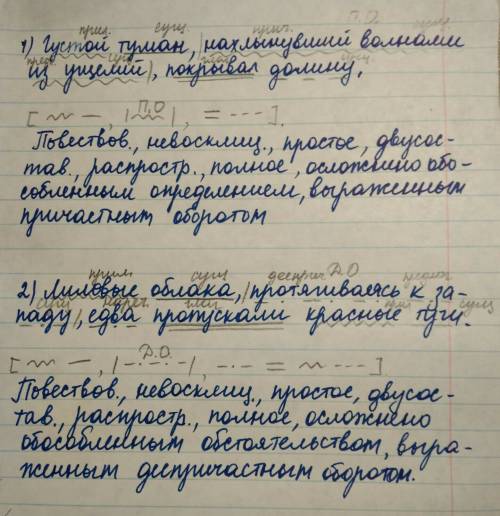 прил. сущ. прич. П.О. сущ.
1) Густой туман, |нахлынувший волнами
предл. сущ. глаг. сущ.
из ущелий|, покрывал долину.
П.О
[ ~ —, |~~|, = --- ].
Повествов., невосклиц., простое, двусос-
тав., распростр., полное, осложнено обо-
собленным определением, выраженным
причастным оборотом
прил. сущ. дееприч. Д.О предлог
2) Лиловые облака, |протягиваясь к за-
сущ. нареч. глаг. прил. сущ.
паду|, едва пропускали красные лучи.
Д.О.
[ ~ —, |-.-.-|, -.- = ~ --- ]
Повествов., невосклиц., простое, двусос-
тав., распростр., полное, осложнено
обособленным обстоятельством, выра-
женным деепричастным оборотом.